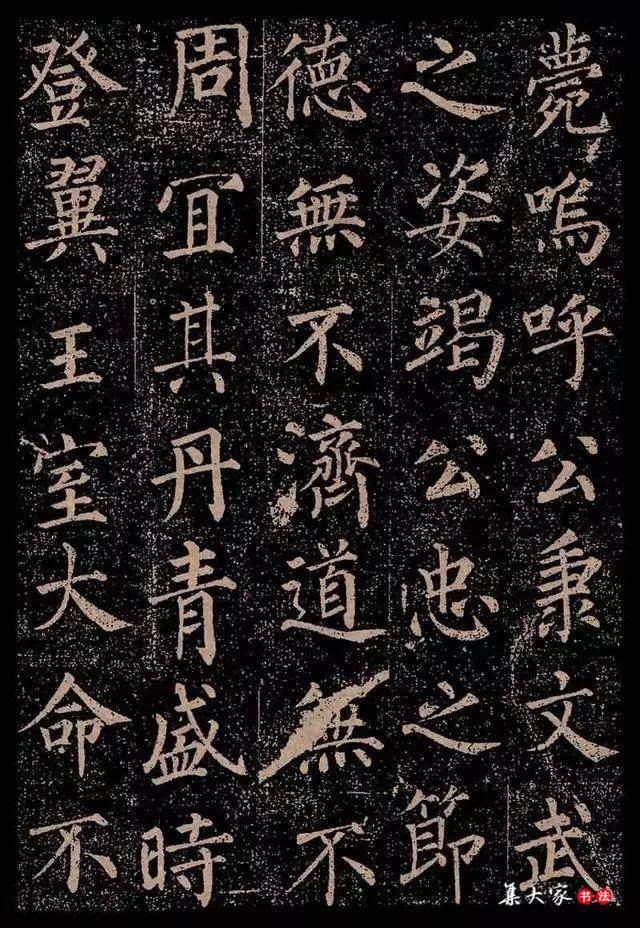 薨嗚呼公秉文武
之姿竭公忠之節
德無不濟道無不
周冝其丹青盛時
登翼王室大命不
集大家书法